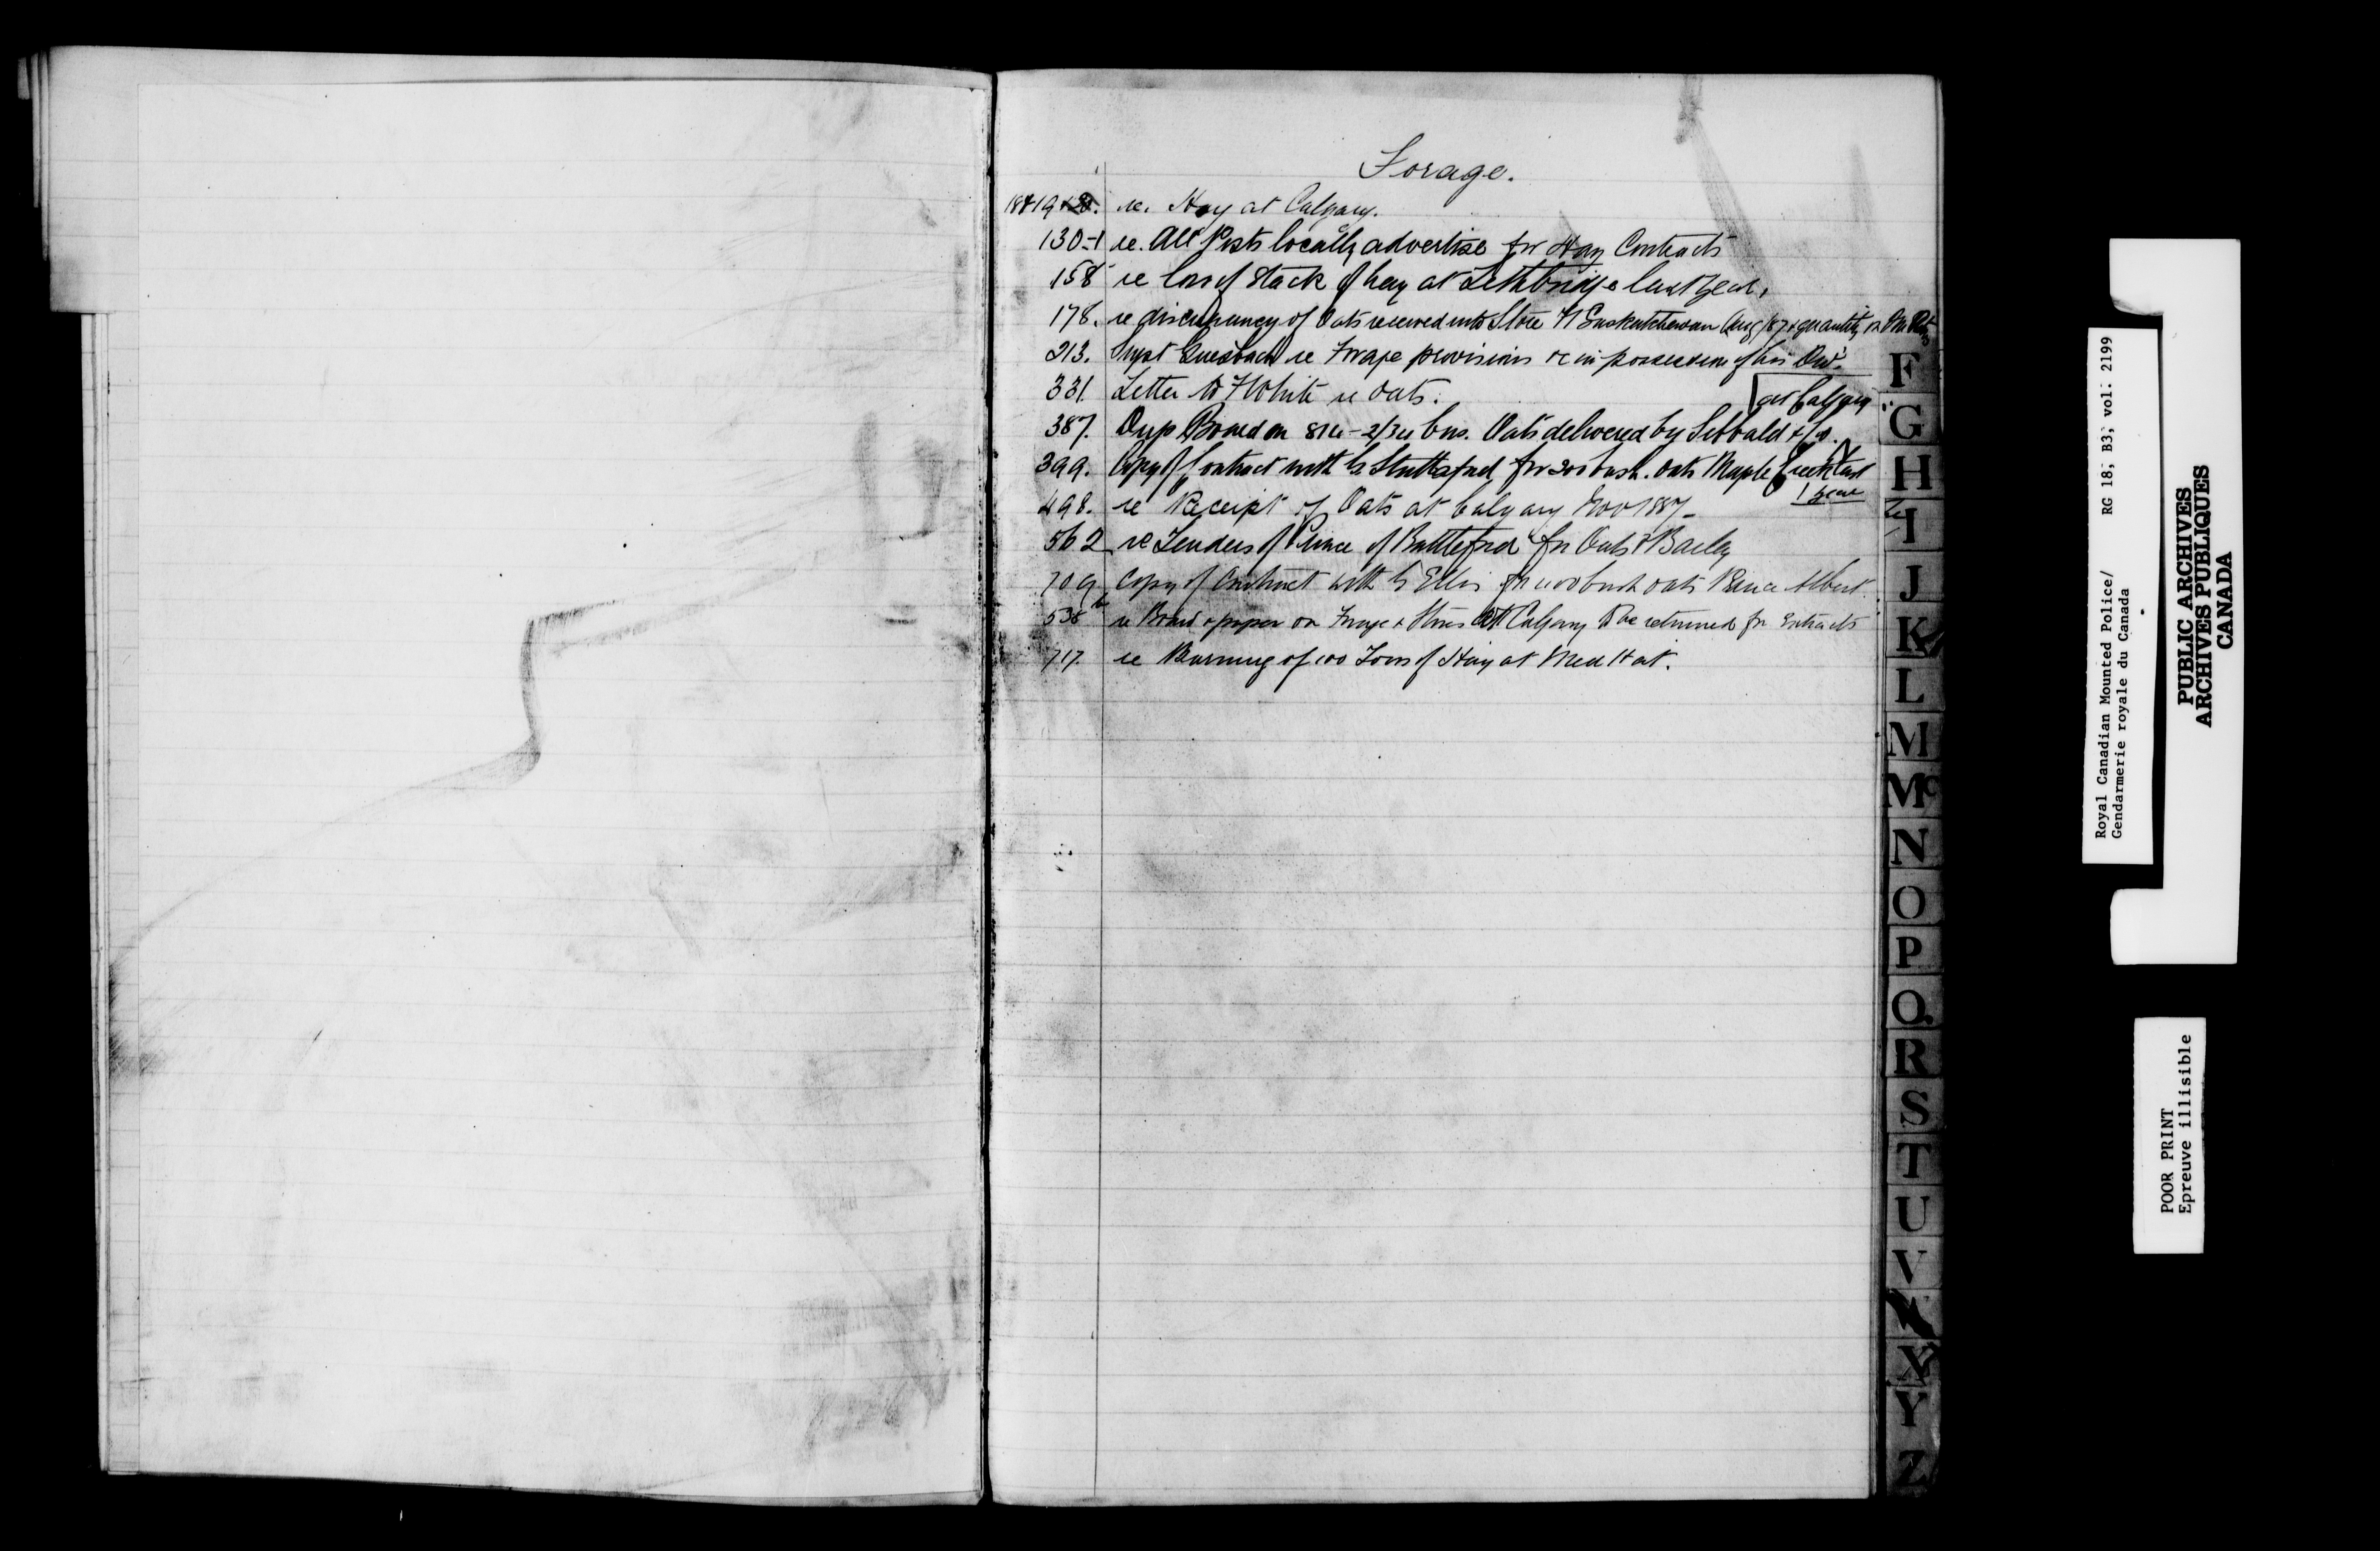 Forage.
18+19+20. re. Hay at Calgary.
130-1 re. All Posts locally advertise for Hay Contracts
158 re loss of Stack of hay at Lethbridge last year.
178. re discrepancy of Oats received into Store N Saskatchewan Aug/87 + quantity in
213. Supt Griesbach re Forage provisions &c in possession of his Div.
331. Letter to F White re Oats.
at Calgary
387. Dup Board on 814-2/34 bus. Oats delivered by Sibbald & Co.
399. Copy of Contract with G Stuttaford for 200 bush. oats Maple Creek last
year
498. re Receipt of Oats at Calgary Nov 1887-
562 re Tenders of Prince of Battleford for Oats & Barley
709 Copy of Contract with G Ellis for bush oats Prince Albert.
538 re Board + paper on Forage + Stores at Calgary to be returned for Extracts
717. re Burning of 100 Tons of Hay at Med Hat.
F
G
H
I
J
K
L
M
Mc
N
O
P
Q
R
S
T
U
V
X
Y
Z
Royal Canadian Mounted Police/ RG 18, B3, vol. 2199
Gendarmerie royale du Canada
PUBLIC ARCHIVES
ARCHIVES PUBLIQUES
CANADA
POOR PRINT
Epreuve illisible